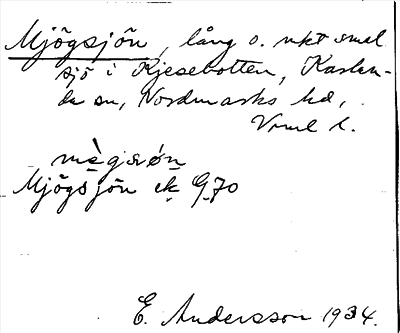 Mjögsjön, lång o. mkt smal
sjö i Kjesebotten, Karlan-
da sn, Nordmarks hd,
Vrml l.
mègsøn
Mjögsjön ek G.70
E. Andersson 1934.